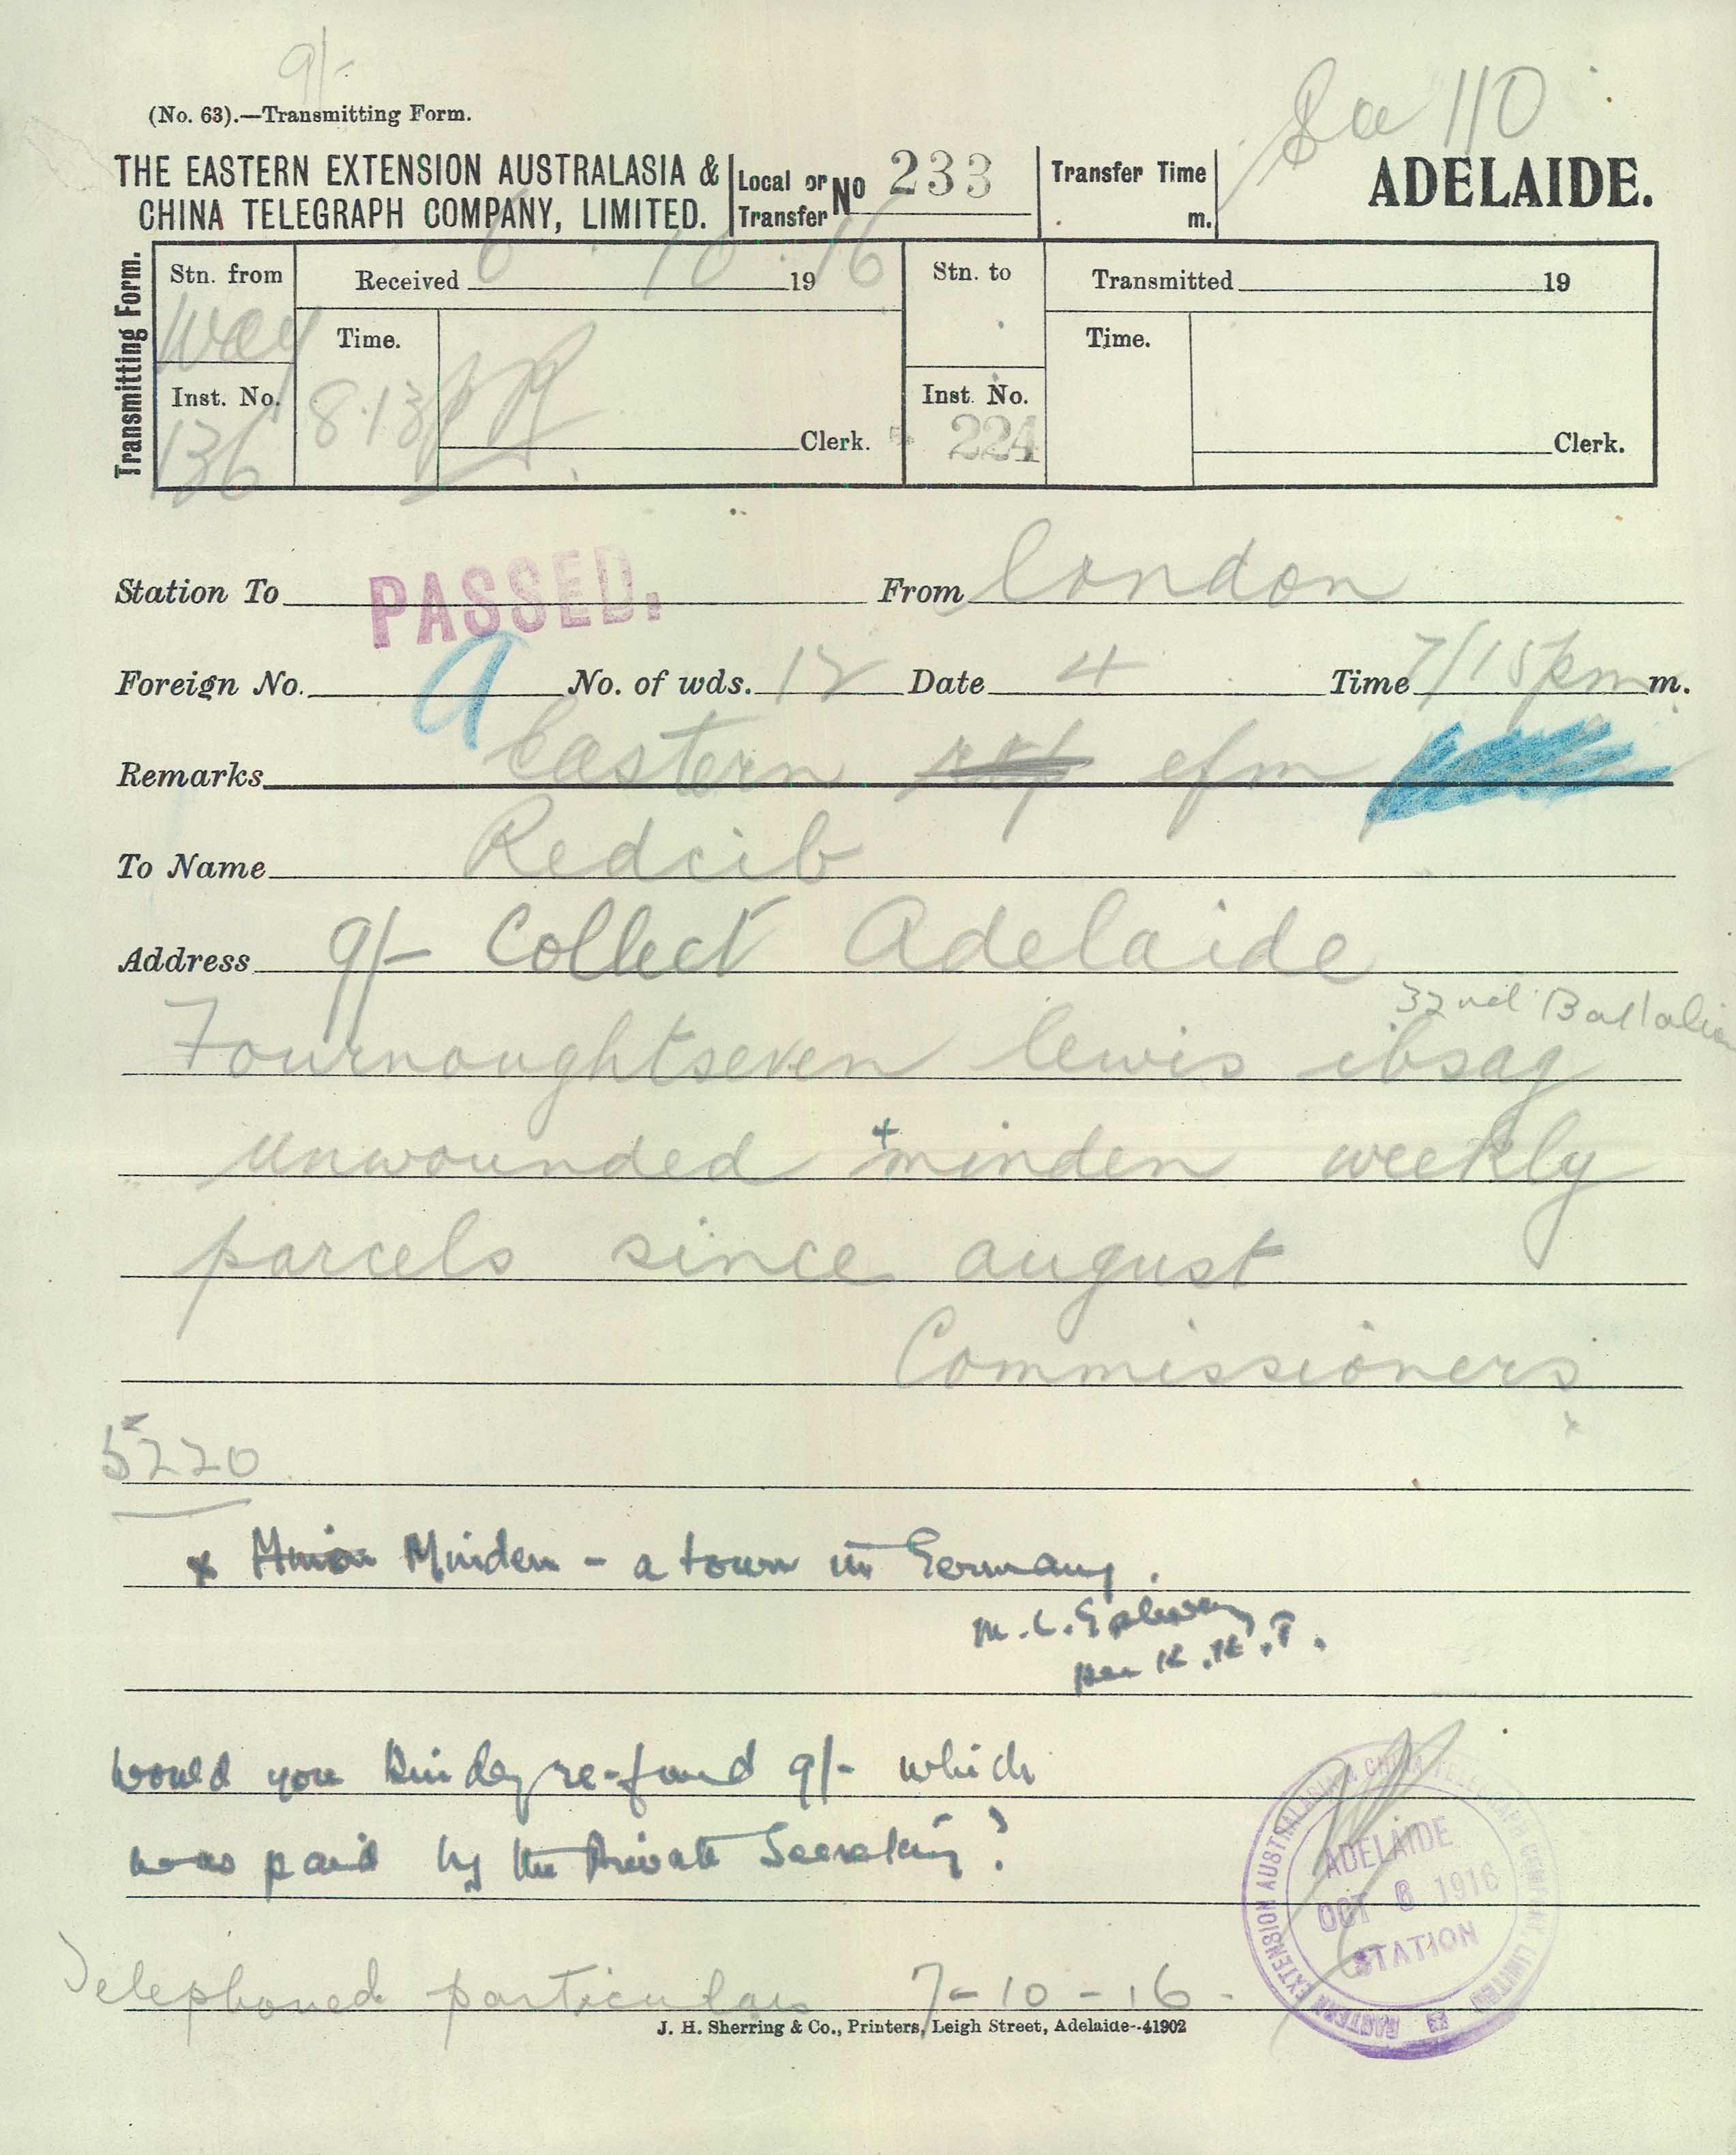 9/-
(No. 63).—Transmitting Form.
110
THE EASTERN EXTENSION AUSTRALASIA &
CHINA TELEGRAPH COMPANY, LIMITED.
Local or
Transfer No 233
Transfer Time
m.
ADELAIDE.
Transmitting Form.
Stn. from
Way
Received 6 . 10 . 1916
Stn. to
Transmitted 19
Time.
8.13
Time.
Inst. No.
136
Clerk.
Inst. No.
224
Clerk.
Station To PASSED. From London
Foreign No. No. of wds. 12 Date 4 Time 7/15pm m.
Remarks Eastern efm
To Name Redcib
Address 9/- Collect Adelaide
32nd Battalion
Fournoughtseven lewis ibsag
unwounded +minden weekly
parcels since august
Commissioners
5220
x Minden - a town in Germany.
M. L. Galway
per K.K.T.
Would you kindly re-fund 9/- which
was paid by the Private Secretary?
Telephoned particulars 7-10-16.
EASTERN EXTENSION AUSTRALASIA & CHINA TELEGRAPH COMPANY LIMITED
ADELAIDE
OCT 6 1916
STATION
J. H. Sherring & Co., Printers, Leigh Street, Adelaide--41902